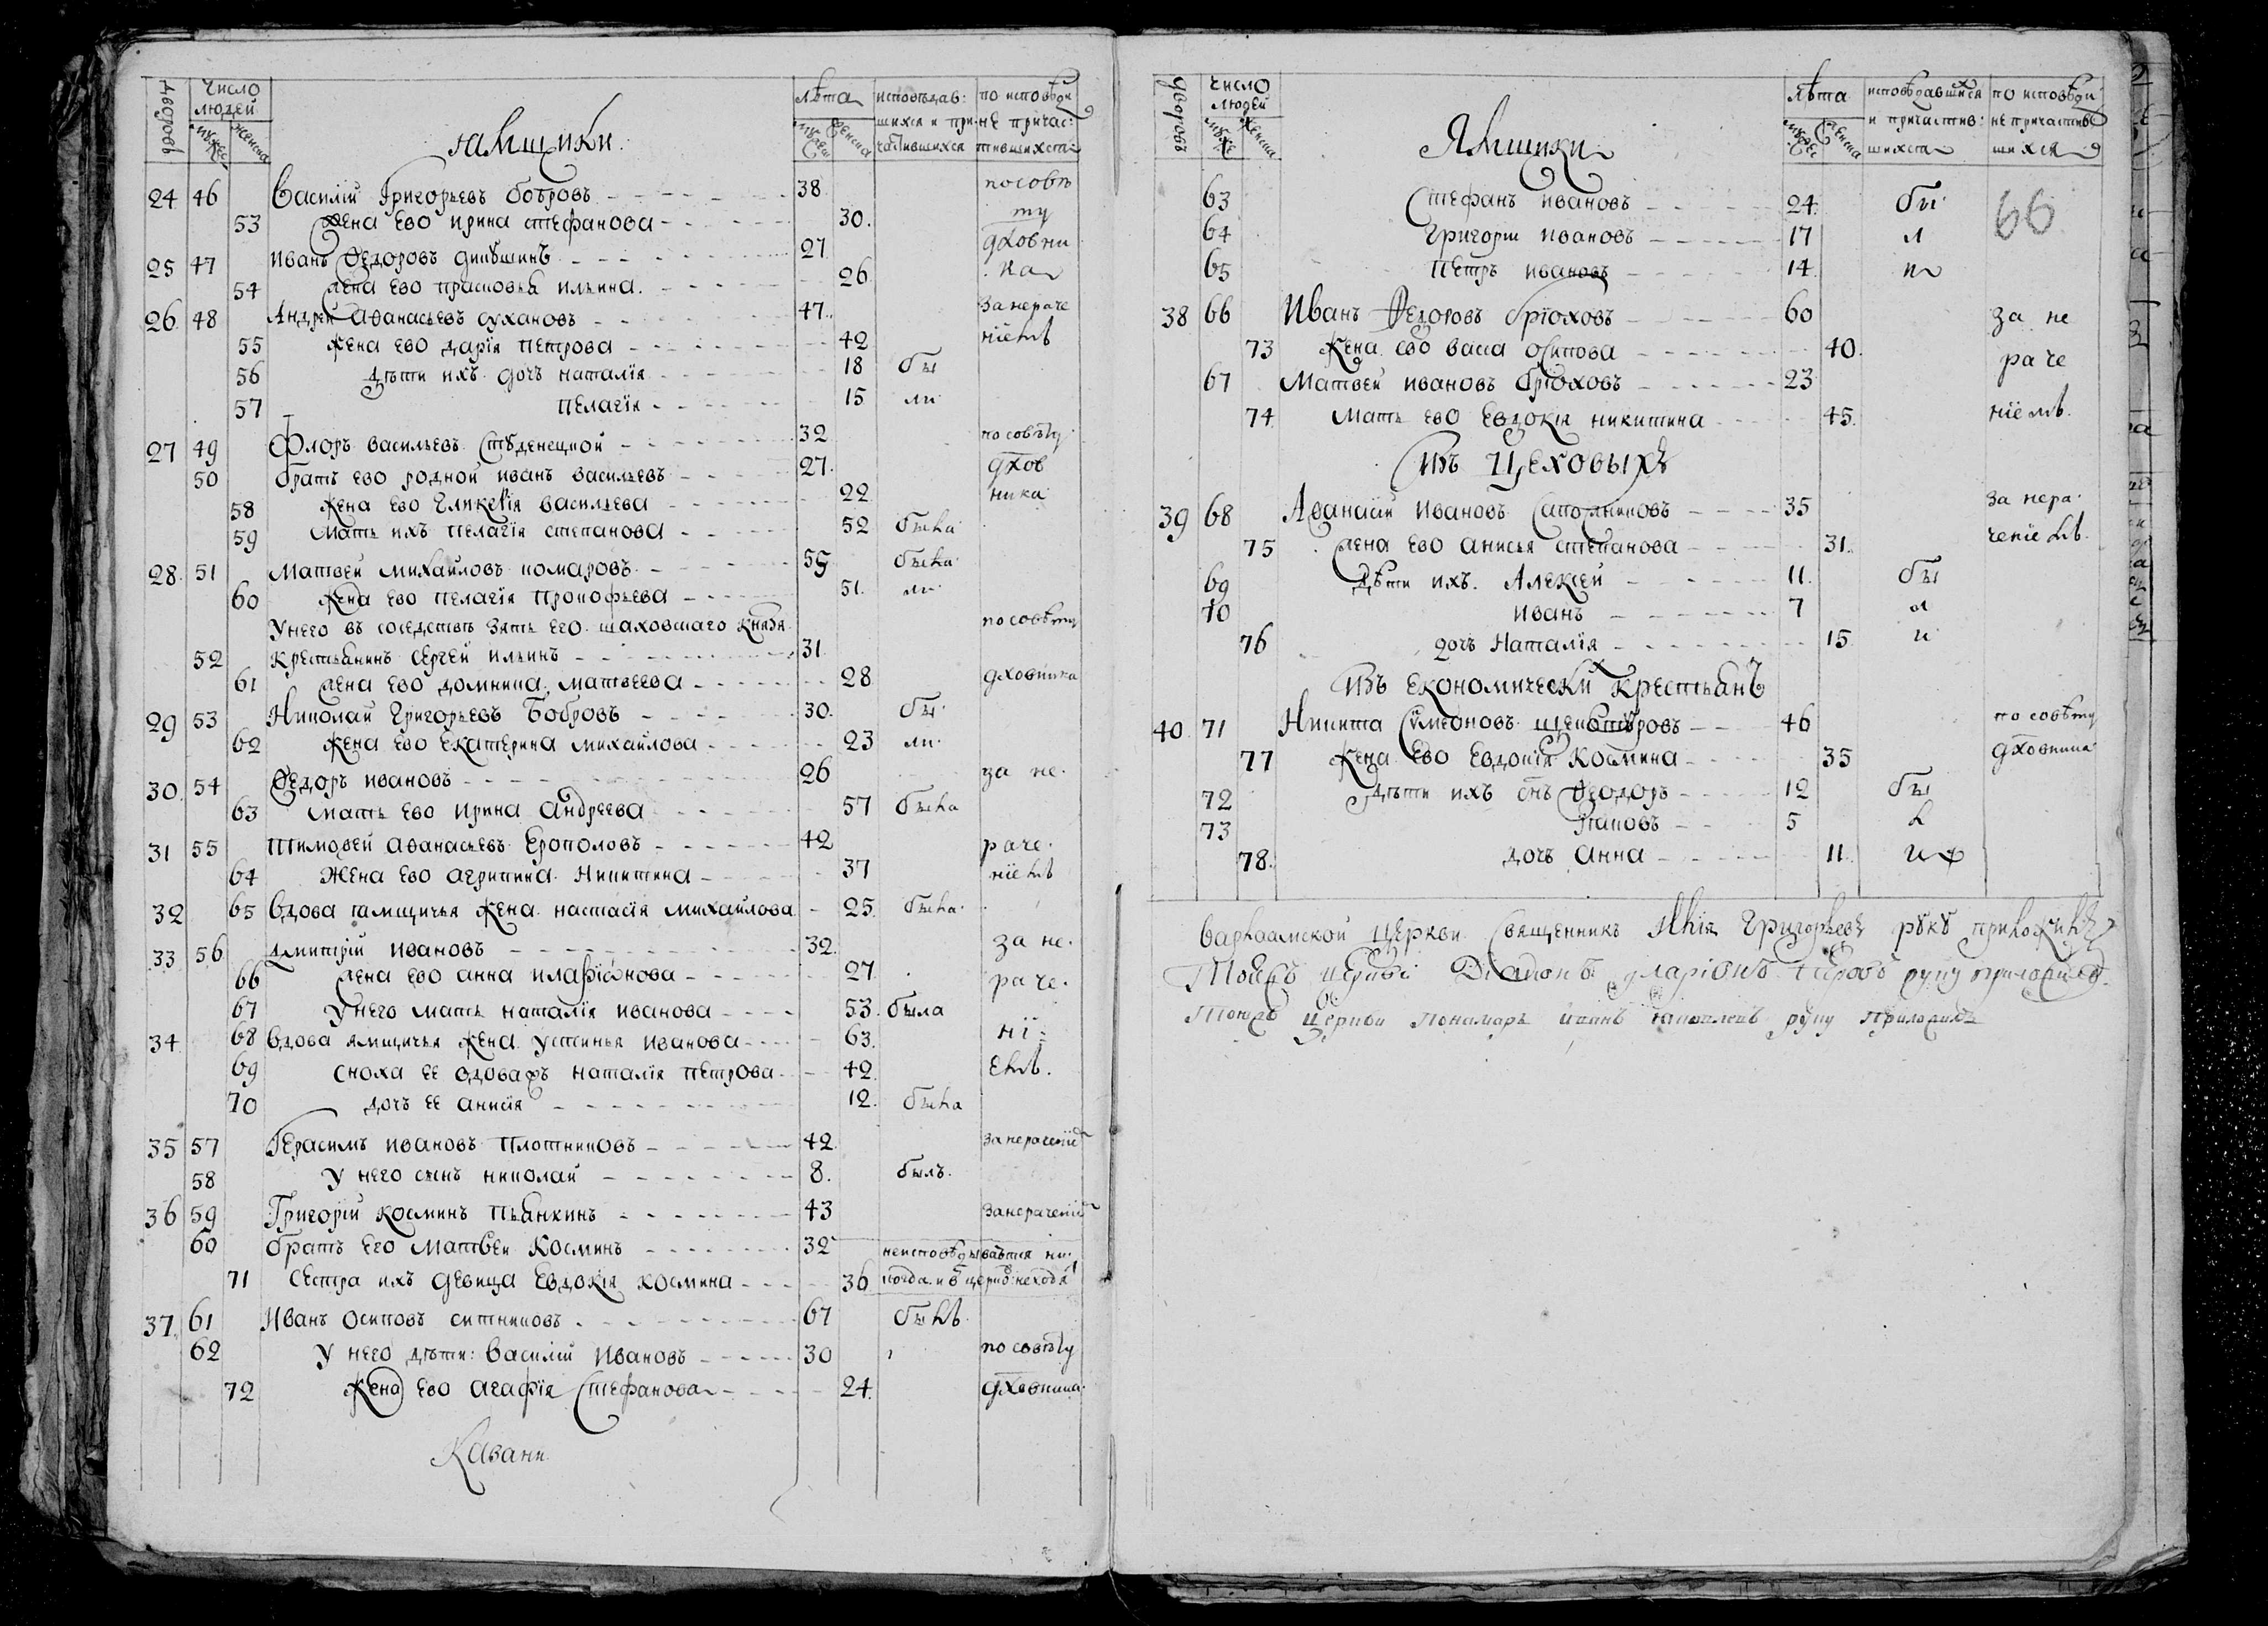 дворовъ
число людей
мужес
женска
ямщики
лѣта
мужеш
женска
исповѣдав:
шихся и при
чатившихся
по исповѣди
не причас:
тившихся
24 46 Василій Григорьевъ бобровъ 38 по совѣ
53 жена ево ирина стефанова 30. ту
25 47 иванъ Ѳедоровъ 27 дховни
54 жена ево прасковья ильина. 26 ка
26 48 Андрей Аѳанасьевъ сухановъ 47 за нераче
55 жена ево дарїя петрова 42 нїемъ
56 дѣти ихъ дочь наталїя 18 бы
57 пелагїя 15 ли
27 49 Флоръ васильевъ Студенецкой 32 по совѣту
50 братъ ево родной иванъ васильевъ 27 дхов
58 жена ево Гликерїя васильева 22 ника
59 мать ихъ пелагїя степанова 52 была
28 51 Матвей михайловъ комаровъ 59 была
60 жена ево пелагїя прокофьева 51. ли
у него въ соседствѣ зять его шаховскаго князя по совѣту
52 крестьянинъ сергей ильинъ 31
61 жена ево домника матвеева 28 дховника
29 53 Николай Григорьевъ Бобровъ 30. бы
62 жена ево екатерина михайлова 23 ли
30. 54 Ѳедоръ ивановъ 26 за не
63 мать ево ирина андреева 57 была
31 55 Тимоѳей аѳанасьевъ Ерополовъ 42 раче
64 Жена ево агрипина Никитина 37 нїемъ
32 65 Вдова ямщичья жена настасїя михайлова 25 была
33 56 Дмитрій ивановъ 32 за не
66 жена ево анна иларїонова 27 раче
67 у него мать наталїя иванова 53 была
34 68 Вдова ямщичья жена устинья иванова 63. нї
69 сноха ее вдова наталїя петрова 42 емъ.
70 дочь ее анисїя 12. была
35 57 Герасимъ ивановъ плотниковъ 42 за нераченїе
58 у него сынъ николай 8. былъ.
36 59 Григорїй косминъ пьянкинъ 43 за нераченїе
60 братъ его матвей косминъ 32 неисповѣдывается ни
71 сестра ихъ девица Евдокїя космина 36 когда и в церковь неходя
37 61 Иванъ осиповъ ситниковъ 67 былъ
62 у него дѣти: василій ивановъ 30 по совѣту
72 жена ево агафїя Стефанова 24. дховника
Казани
дворовъ
число людей
мужес
женска
Ямщики
лѣта
мужес
женска
исповѣдавшихся
и причастив:
шихся
по исповѣди
не причастив
шихся
63 Стефанъ ивановъ 24. бы 66
64 Григорїи ивановъ 17 л
65 Петръ ивановъ 14 и
38 66 Иванъ Ѳедоровъ брюховъ 60 за не
73 жена ево васса осипова 40. раче
67 Матвей ивановъ брюховъ 23
74 мать ево евдокїя никитина 45. нїемъ.
Изъ Цеховыхъ
39 68 Аѳанасїй ивановъ Сапожниковъ 35 за нера
75 жена ево анисья степанова 31. ченїемъ.
69 дѣти ихъ. Алексей 11. бы
70 иванъ 7 л
76 дочь Наталїя 15 и
Изъ Економически крестьянъ
40 71 Никита Симеоновъ 46 по совѣту
77 жена ево евдокїя космина 35 дховника
72 дѣти ихъ снъ Ѳеодоръ 12 бы
73 Іаковъ 5 л
78. дочь анна 11. и
варлаамской церкви священникъ Илїя Григорьевъ руку приложилъ
Тоежъ церкви Дїаконъ иларїонъ петровъ руку приложилъ
Тоежъ церкви пономарь иванъ руку приложилъ